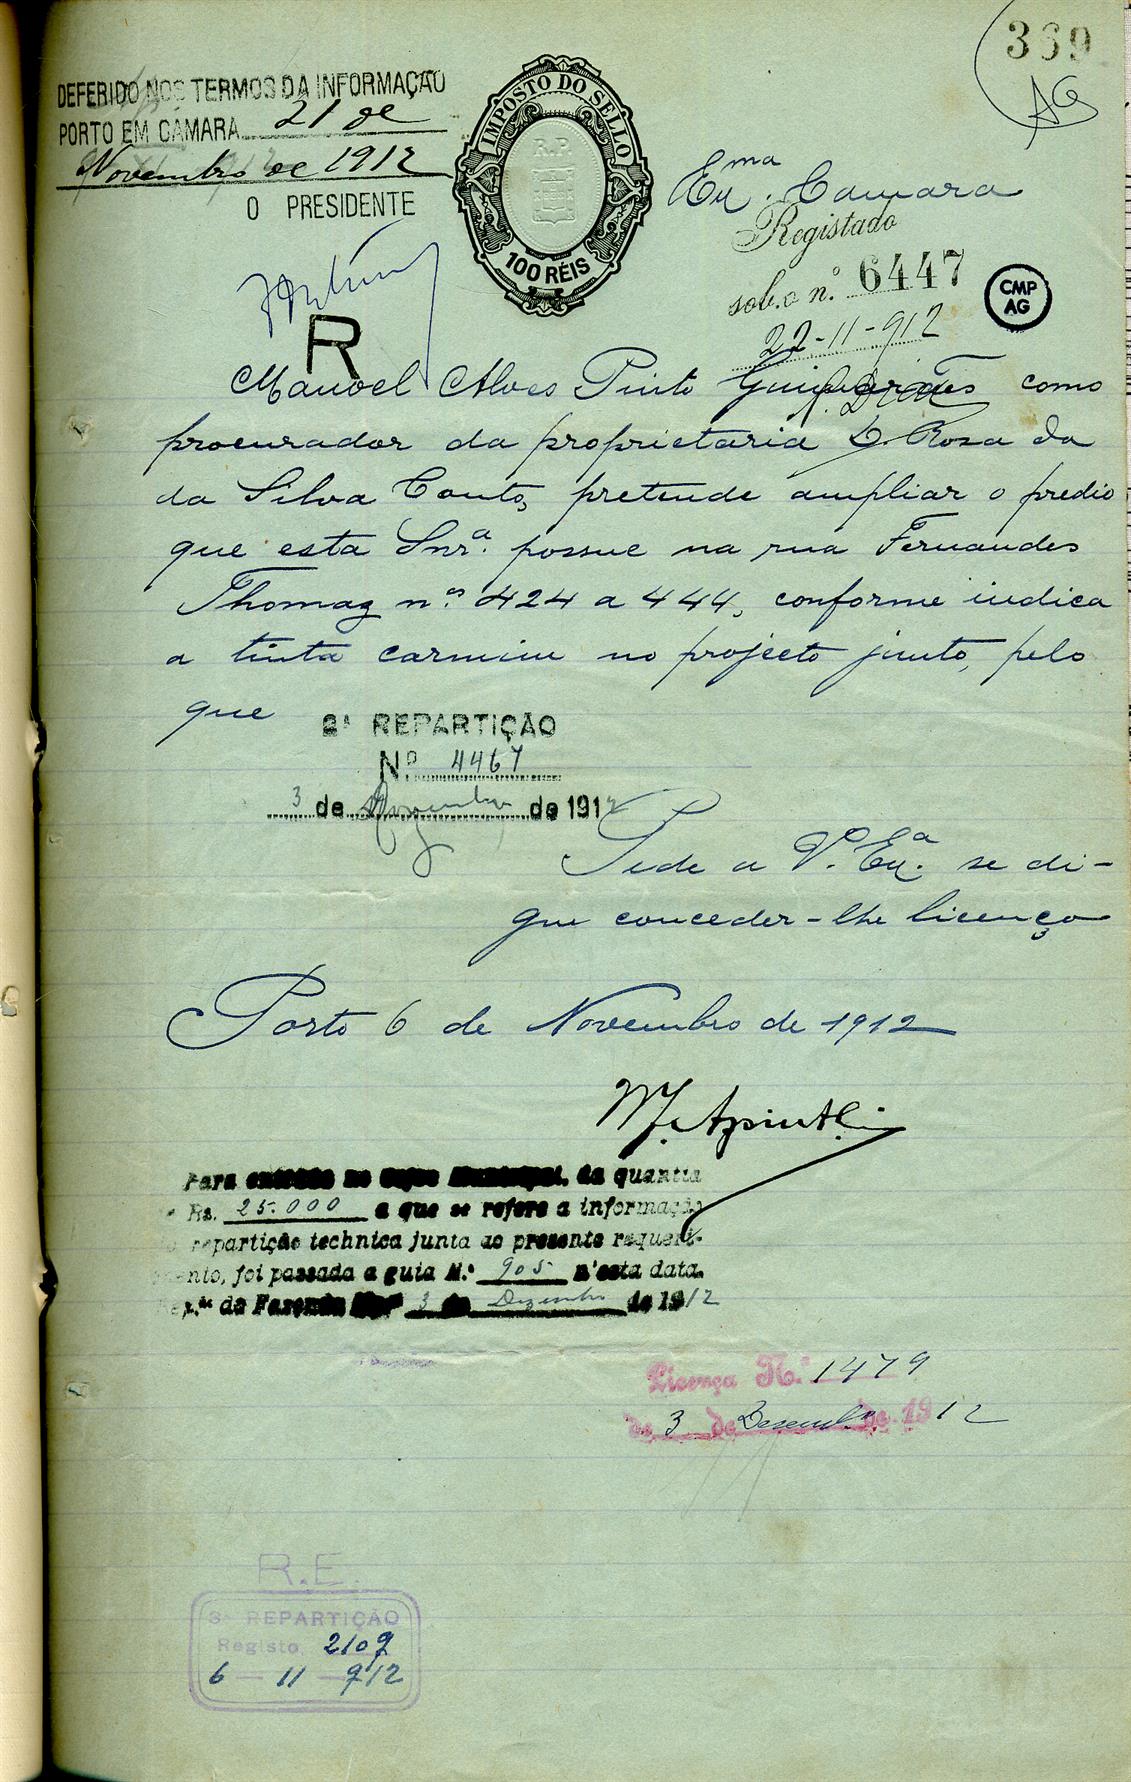 369
AG
DEFERIDO NOS TERMOS DA INFORMAÇÃO
PORTO EM CAMARA 21 de
Novembro de 1912
O PRESIDENTE
IMPOSTO DO SELLO
R.P.
100 RÉIS
Exma. Camara
Registado
sob. o n.º 6447
22-11-912
CMP
AG
R
Manoel Alves Pinto Guimarães como
procurador da proprietaria D. Rosa da
da Silva Couto, pretende ampliar o predio
que esta Snrª. possue na rua Fernandes
Thomaz n.ºs 424 a 444, conforme indica
a tinta carmim no projecto junto, pelo
que
2ª REPARTIÇÃO
Nº 4467
3 de de 1912
Pede a V. Exª. se di-
gne conceder-lhe licença
Porto 6 de Novembro de 1912
Para entrada no Cofre Municipal, da quantia
Rs. 25.000 a que se refere a informação
repartição technica junta ao presente requeri-
mento, foi passada a guia N.º 905 n'esta data.
Rep.ão de Fazenda 3 de Dezembro de 1912
Licença N.º 1479
de 3 de Dezembro de 1912
R.E.
3ª REPARTIÇÃO
Registo 2109
6 - 11 - 912